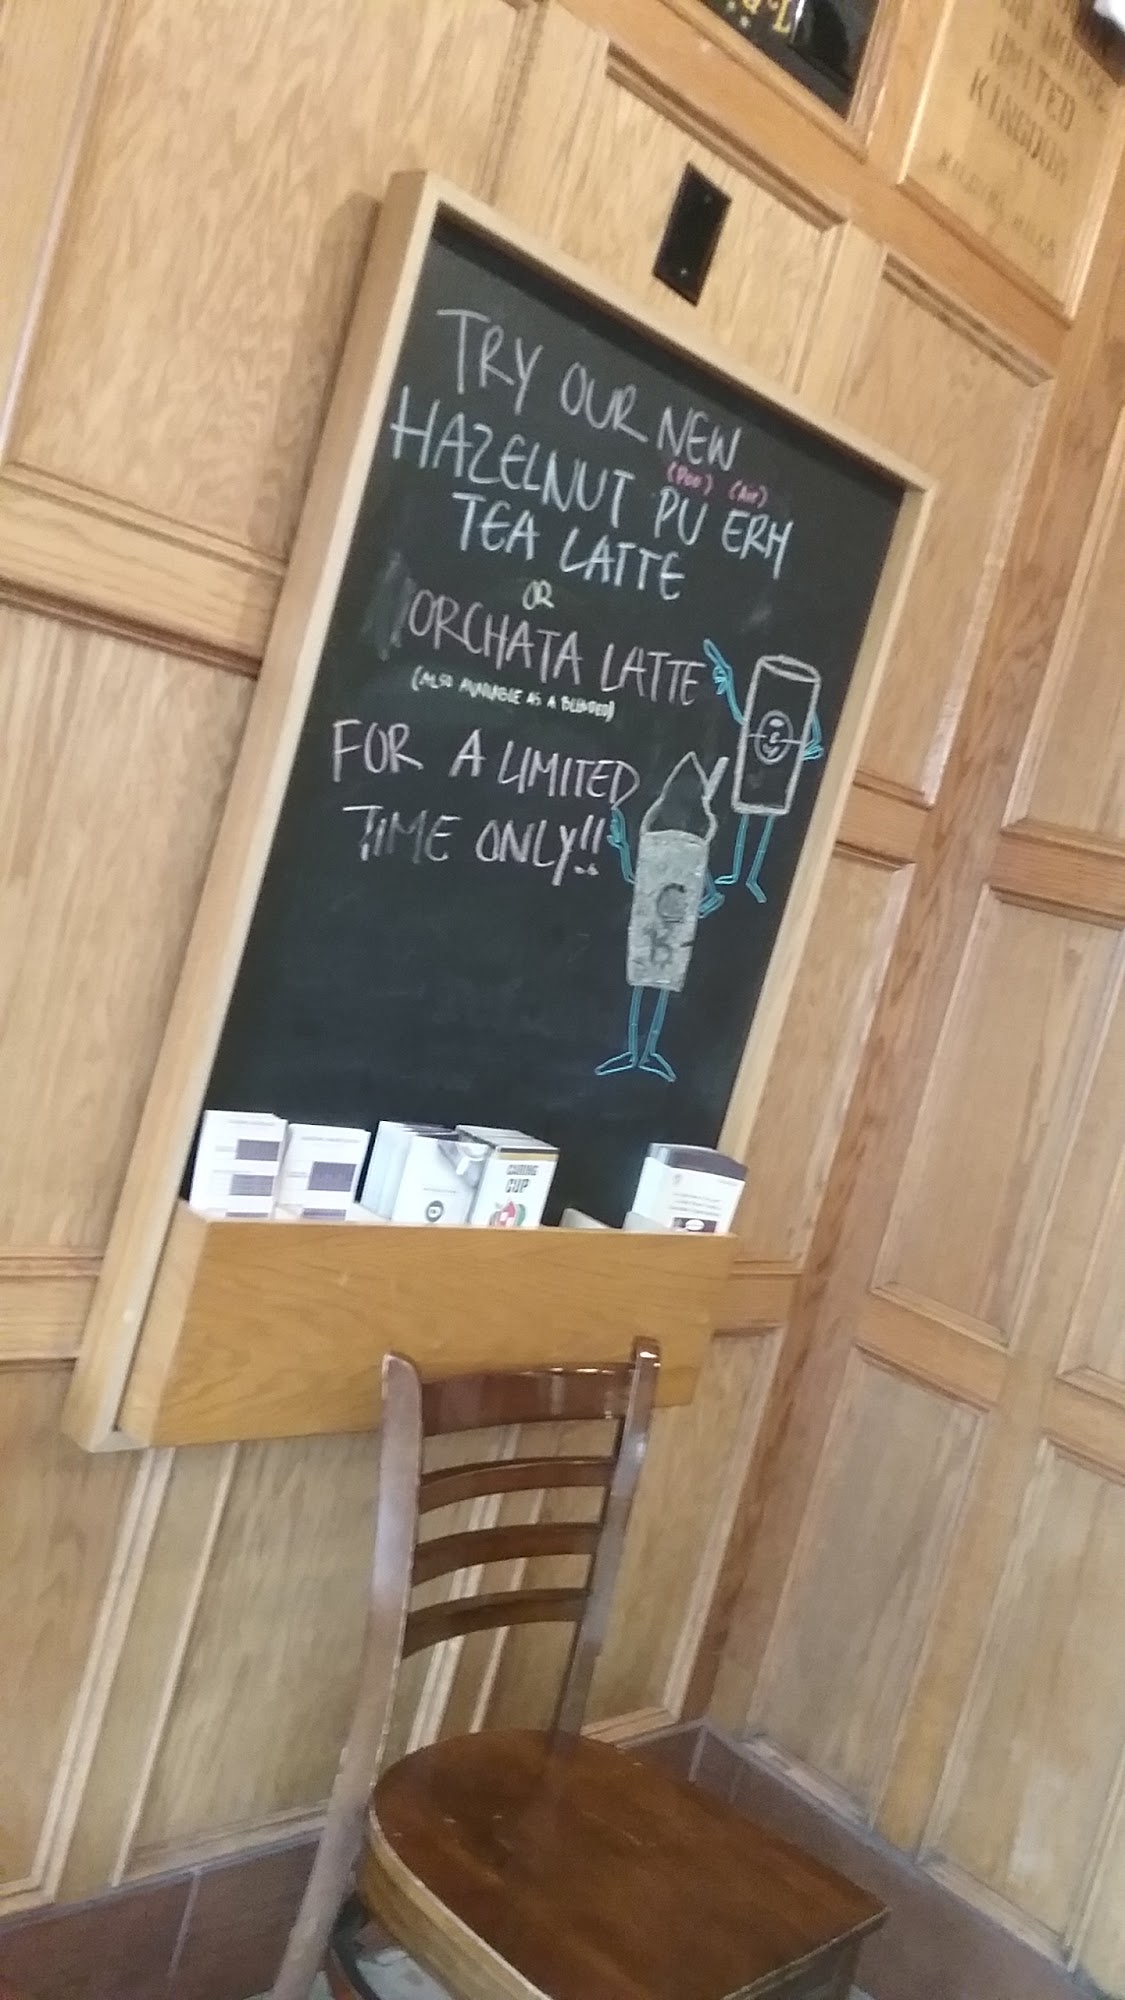 UNITED
KINGDOM
TRY OUR NEW
HAZELNUT PU ERH
(Poo) (Air)
TEA LATTE
OR
ORCHATA LATTE
(ALSO AVAILABLE AS A BLENDED)
FOR A LIMITED
TIME ONLY!!
C
B
CARING
CUP